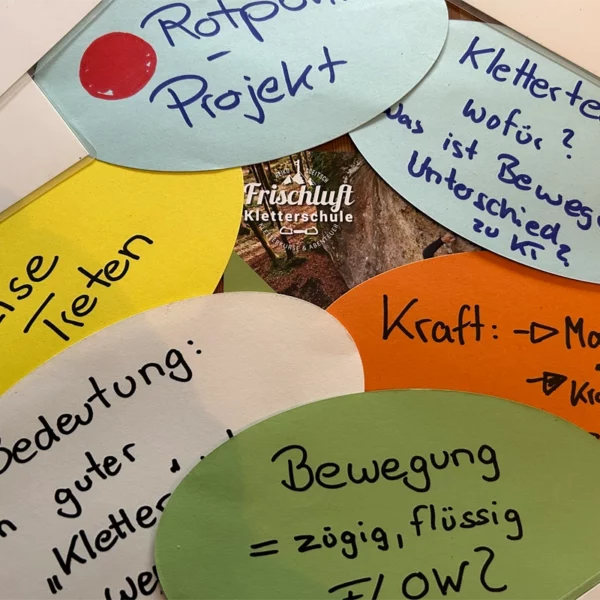 Rotpunkt
-
Projekt
Kletterte
wofür?
Was ist Beweg
Unterschied
zu KT?
Frischluft
Kletterschule
Treten
Kraft: →
Bedeutung:
guter
„Kletter
Bewegung
= zügig, flüssig
FLOW?